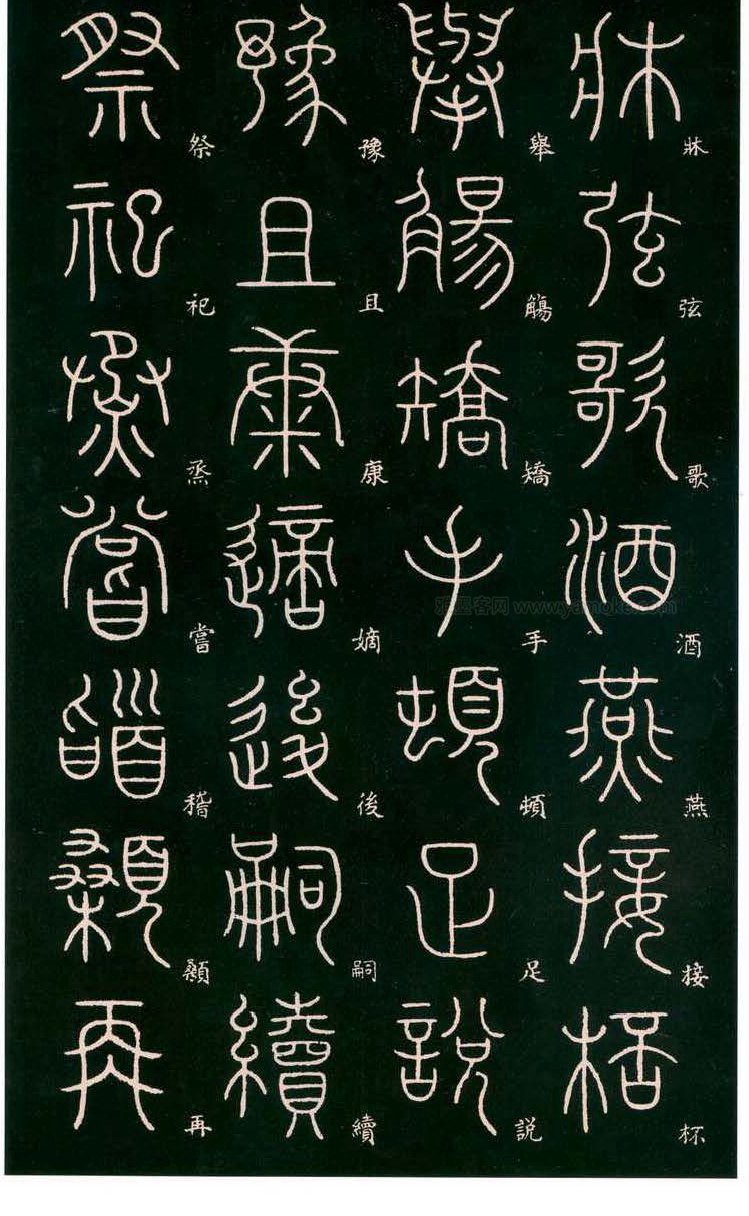 牀弦歌酒燕接杯
舉觴矯手頓足説
豫且康嫡後嗣續
祭祀烝嘗稽顙再